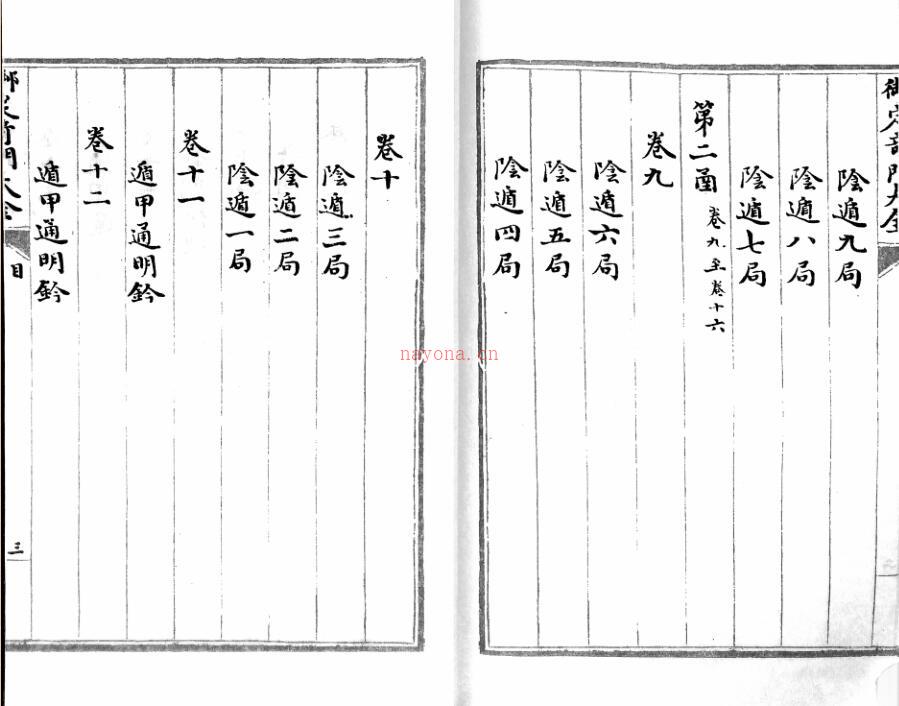 御定奇門大全
陰遁九局
陰遁八局
陰遁七局
第二函 卷九至卷十六
卷九
陰遁六局
陰遁五局
陰遁四局
卷十
陰遁三局
陰遁二局
陰遁一局
卷十一
遁甲通明鈐
卷十二
遁甲通明鈐
御定奇門大全
目
三
nayona.cn